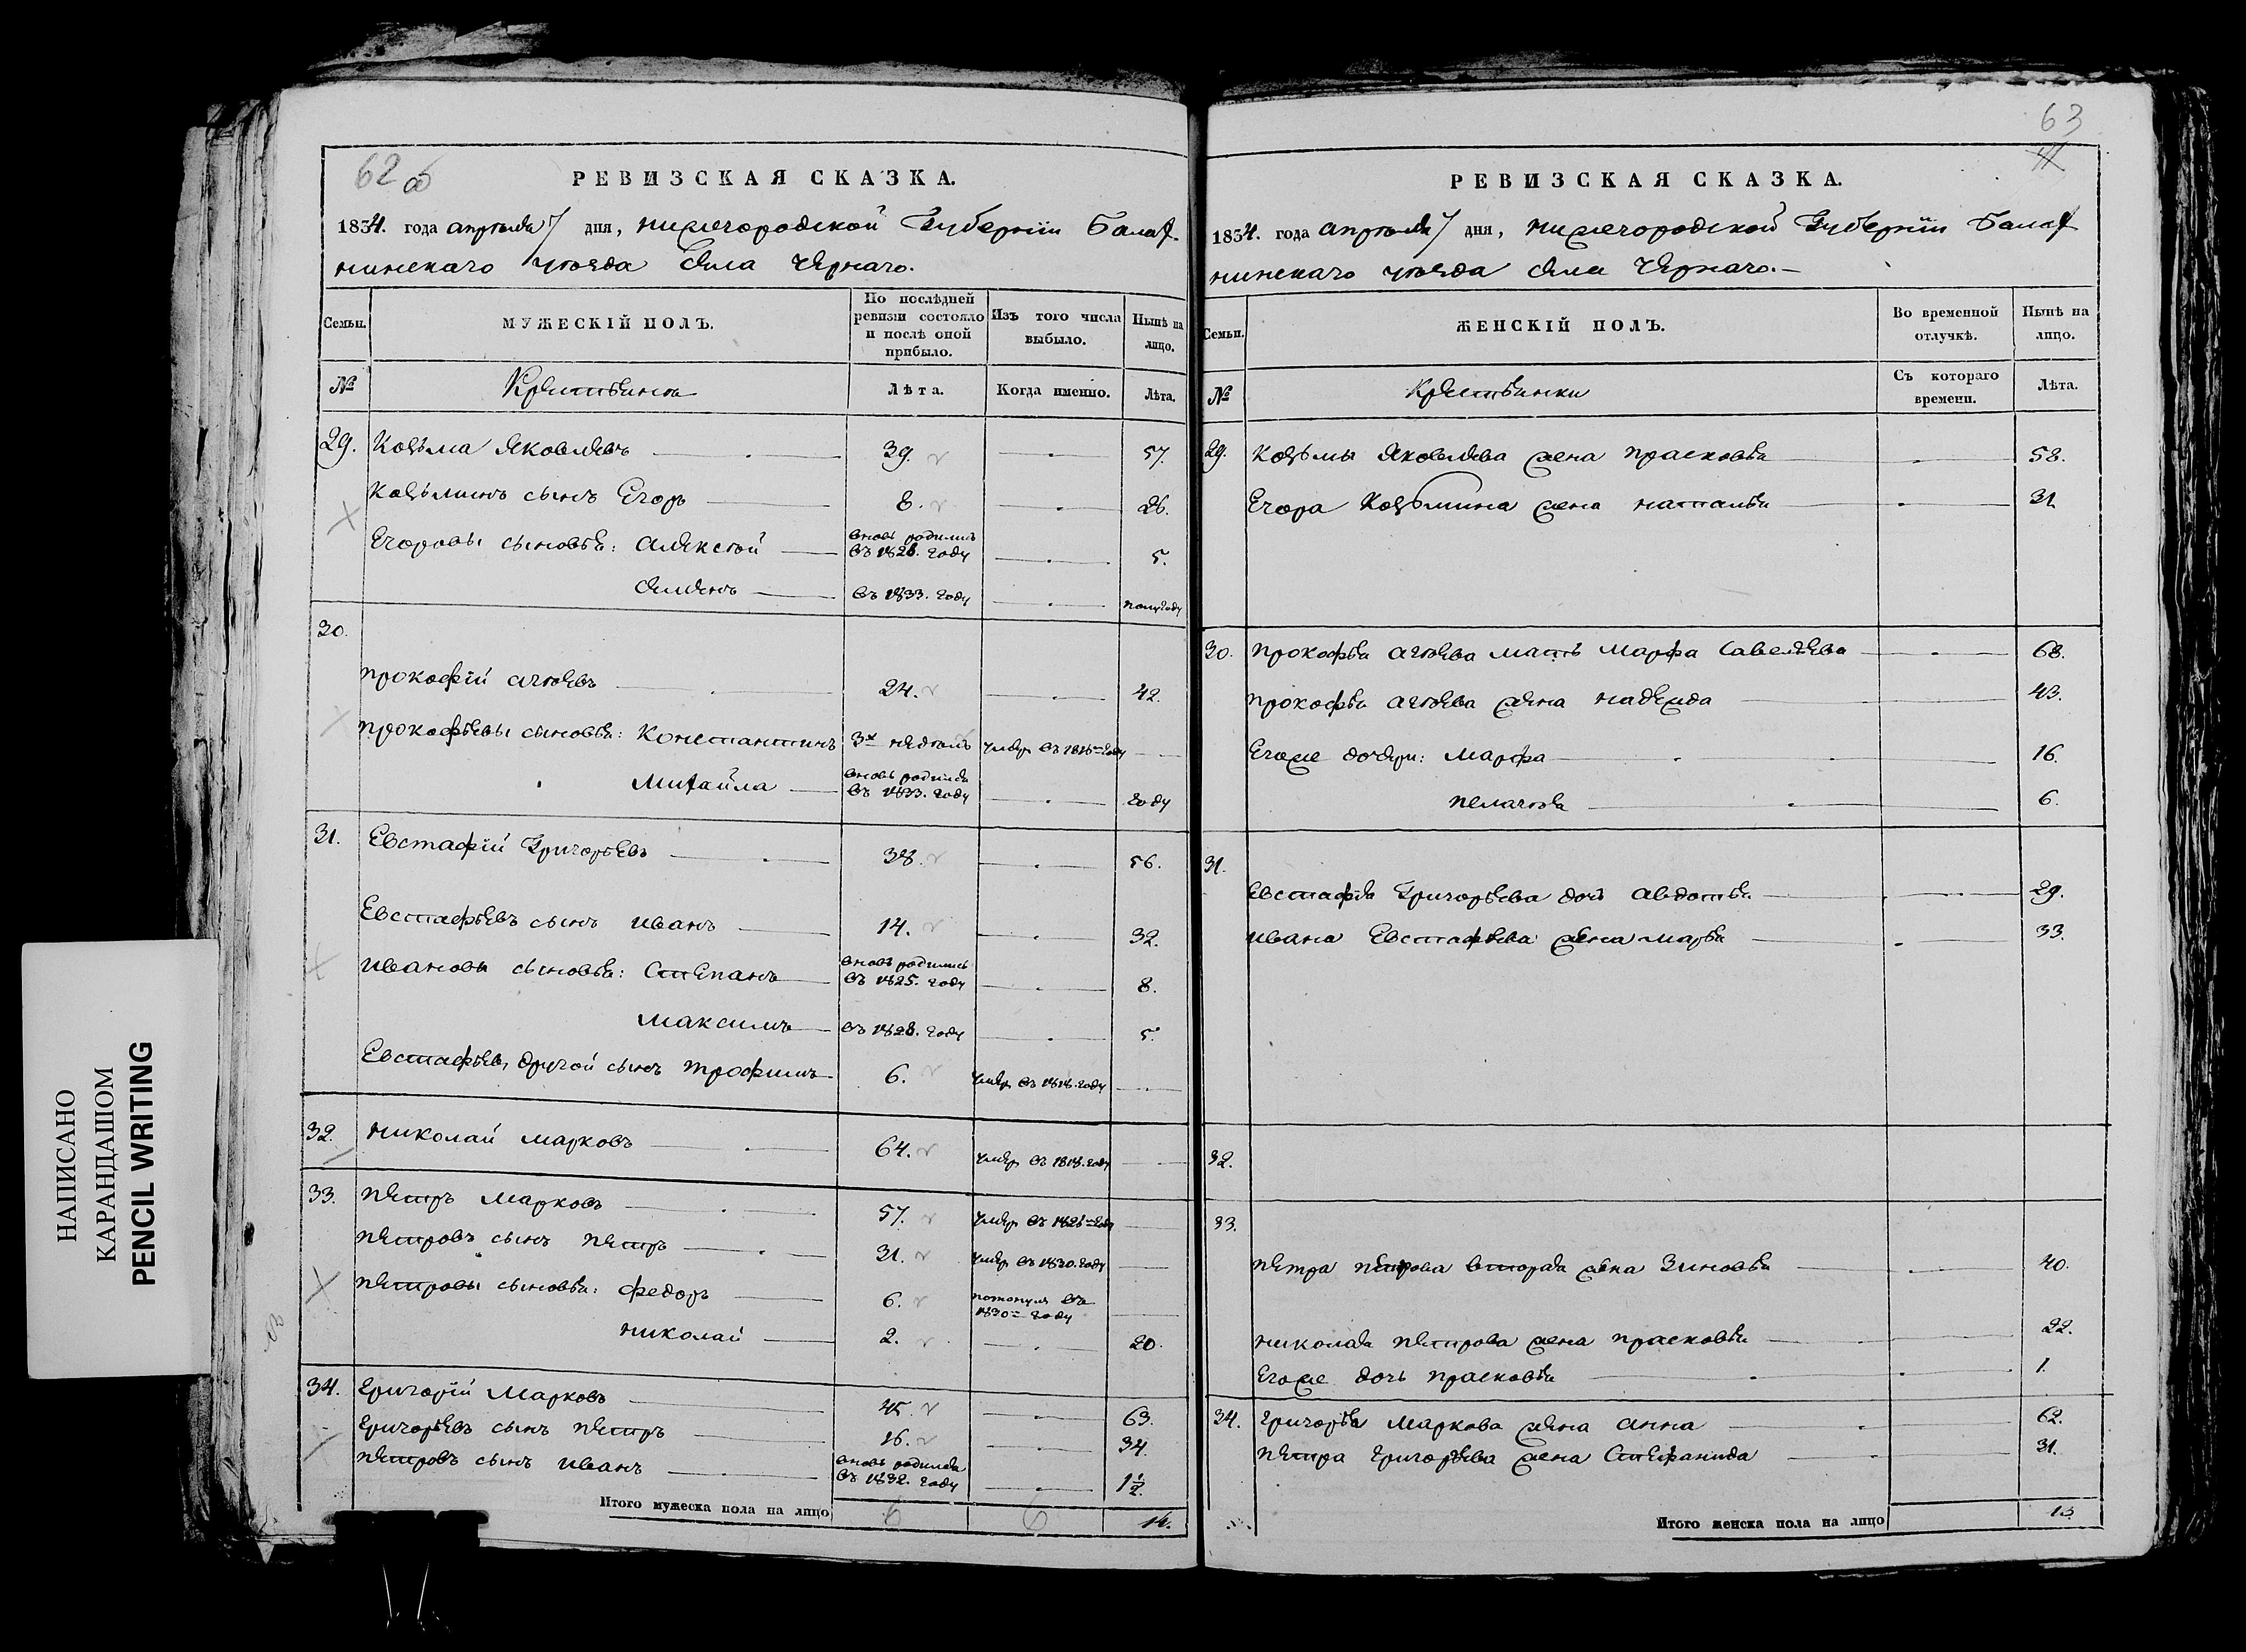 62 об
РЕВИЗСКАЯ СКАЗКА.
1834. года апреля 7 дня, нижегородской Губернiи Балах
нинскаго уѣзда села Чернаго.
Семьи.
МУЖЕСКIЙ ПОЛЪ.
По послѣдней ревизiи состояло и послѣ оной прибыло.
Изъ того числа выбыло.
Нынѣ на лицо.
№ Крестьянѣ Лѣта. Когда именно. Лѣта.
29. Козьма Яковлевъ 39. 57.
Козьминъ сынъ Егоръ 8. 26.
Егоровы сыновья: Алексѣй вновь родились въ 1828. году 5.
Семенъ въ 1833. году полугоду
30.
прокофiй агѣевъ 24. 42.
прокофьевы сыновья: Константинъ 3х недѣль умеръ въ 1816 году
Михайла вновь родился въ 1833. году году
31. Евстафiй Григорьевъ 38. 56.
Евстафьевъ сынъ иванъ 14. 32.
ивановы сыновья: Степанъ вновь родились въ 1825. году 8.
Максимъ въ 1828. году 5.
Евстафьевъ другой сынъ трофимъ 6. умеръ въ 1818. году
32. николай марковъ 64. умеръ въ 1818. году
33. петръ Марковъ 57. умеръ въ 1826 году
петровъ сынъ петръ 31. умеръ въ 1830. году
петровы сыновья: федоръ 6. потонулъ въ 1830 году
николай 2. 20.
34. григорiй Марковъ 45. 63.
григорьевъ сынъ петръ 16. 34.
петровъ сынъ иванъ вновь родился въ 1832. году 1 1/2
Итого мужеска пола на лицо 6 6 14.
63
РЕВИЗСКАЯ СКАЗКА.
1834. года апреля 7 дня, нижегородской Губернiи Балах
нинскаго уѣзда села Чернаго.
Семьи.
ЖЕНСКIЙ ПОЛЪ.
Во временной отлучкѣ.
Нынѣ на лицо.
№ Крестьянки Съ котораго времени. Лѣта.
29. Козьмы Яковлева жена прасковья 58.
Егора Козьмина жена наталья 31
30. прокофья агѣева мать марфа Савельева 68.
прокофья агѣева жена надежда 43.
Егоже дочери: Марфа 16.
пелагѣя 6.
31.
Евстафiя Григорьева дочь авдотья 29.
ивана Евстафьева жена марья 33.
32.
33.
петра петрова вторая жена Зиновья 40.
николая петрова жена прасковья 22.
Егоже дочь прасковья 1.
34. григорья Маркова жена анна 62.
петра григорьева жена Стефанида 31.
Итого женска пола на лицо 13
НАПИСАНО
КАРАНДАШОМ
PENCIL WRITING